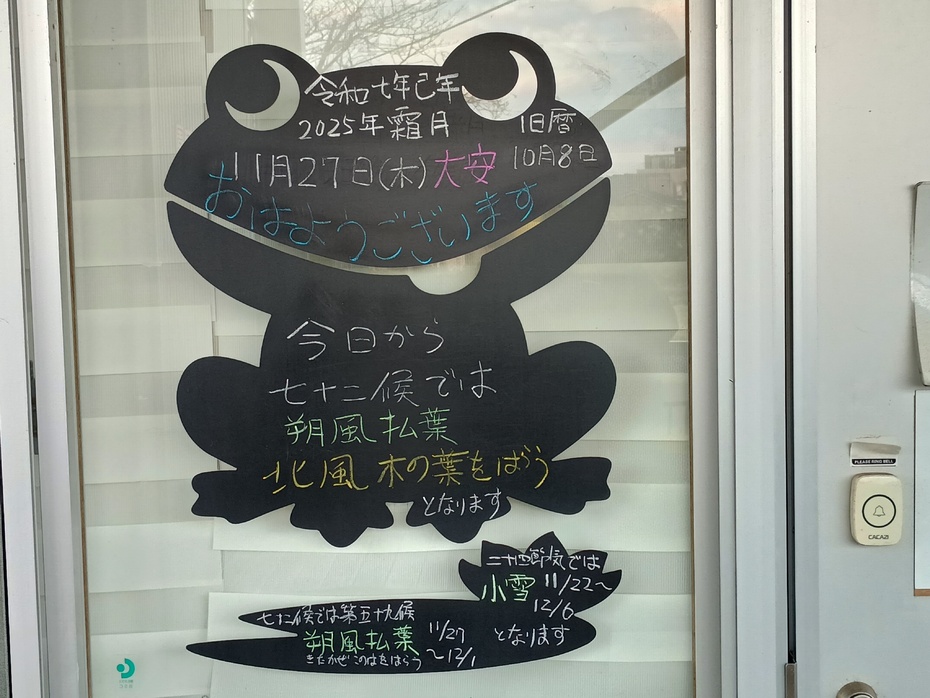 令和七年己年
2025年霜月
旧暦
10月8日
11月27日(木)大安
おはようございます
今日から
七十二候では
朔風払葉
北風木の葉をはらう
となります
二十四節気では
小雪 11/22〜
12/6
となります
七十二候では第五十九候
朔風払葉 11/27
〜12/1
きたかぜ このはをはらう
PLEASE RING BELL
CACAZI